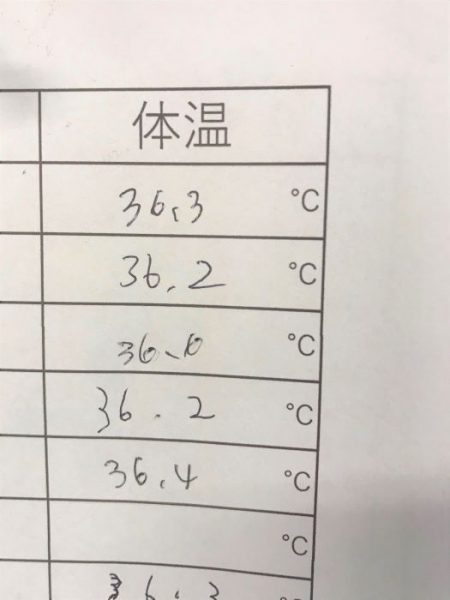 体温
36.3 °C
36.2 °C
36.0 °C
36.2 °C
36.4 °C
°C
36.3 °C